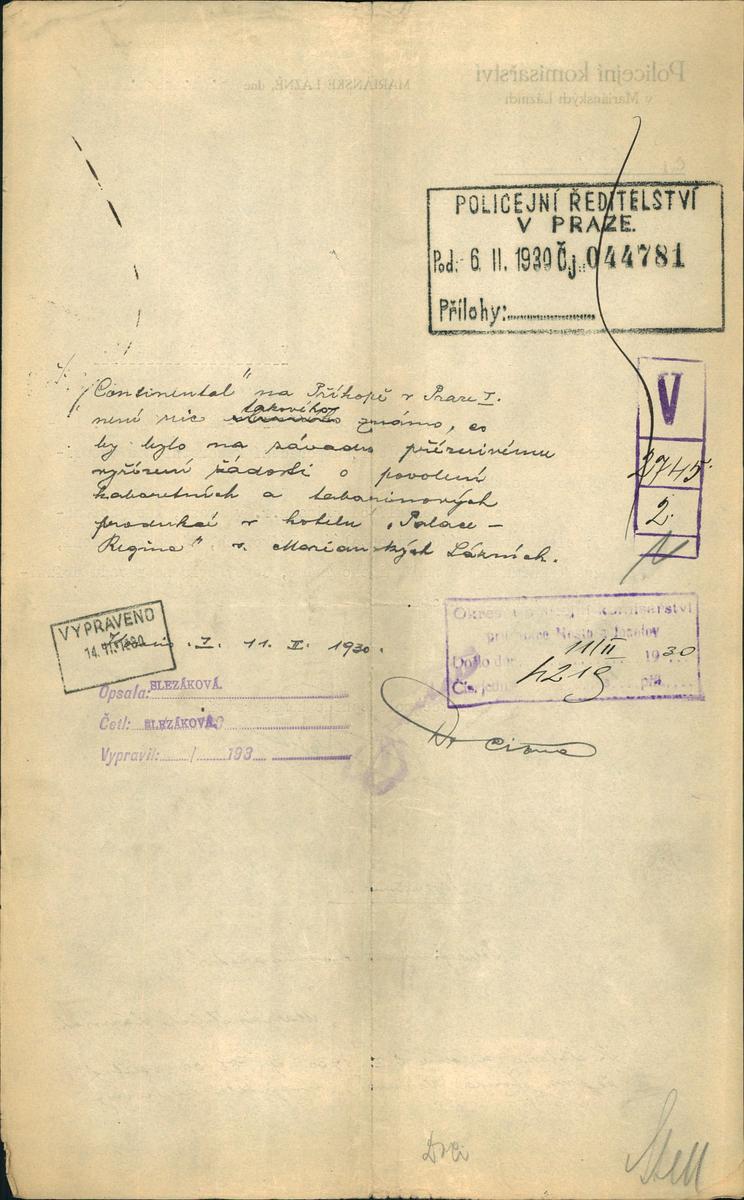 POLICEJNÍ ŘEDITELSTVÍ
V PRAZE.
Pod.: 6. II. 1930 Čj. 044781
Přílohy:
V
2745
2.
„Continental" na Příkopě v Praze I.
není nic takového známo, co
by bylo na závadu příznivému
vyřízení žádosti o povolení
kabaretních a tabarinových
produkcí v hotelu „Palace-
Regina" v Mariánských Lázních.
VYPRAVENO
14. II. 1930
I. 11. II. 1930.
Došlo dne 11/II 1930
Čís. jedn. 4219 příl.
Opsala: SLEZÁKOVÁ.
Četl: SLEZÁKOVÁ.
Vypravil: / 193
Dr
Policejní komisařství
v Mariánských Lázních
MARIÁNSKÉ LÁZNĚ, dne